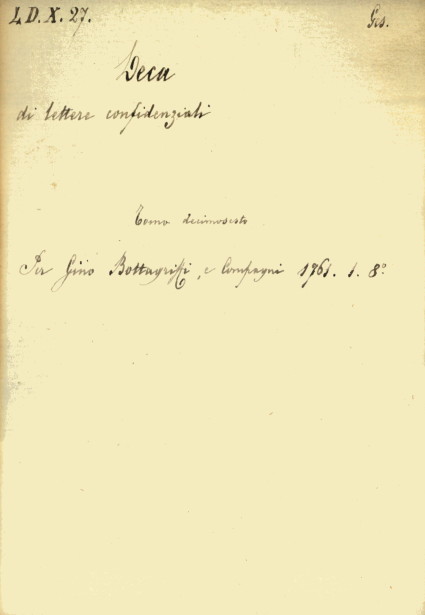 4 D. X. 27.
Ges.
Deca
di lettere confidenziali
Tomo decimosesto
Per Gino Bottagriffi, e Compagni 1761. 1. 8º